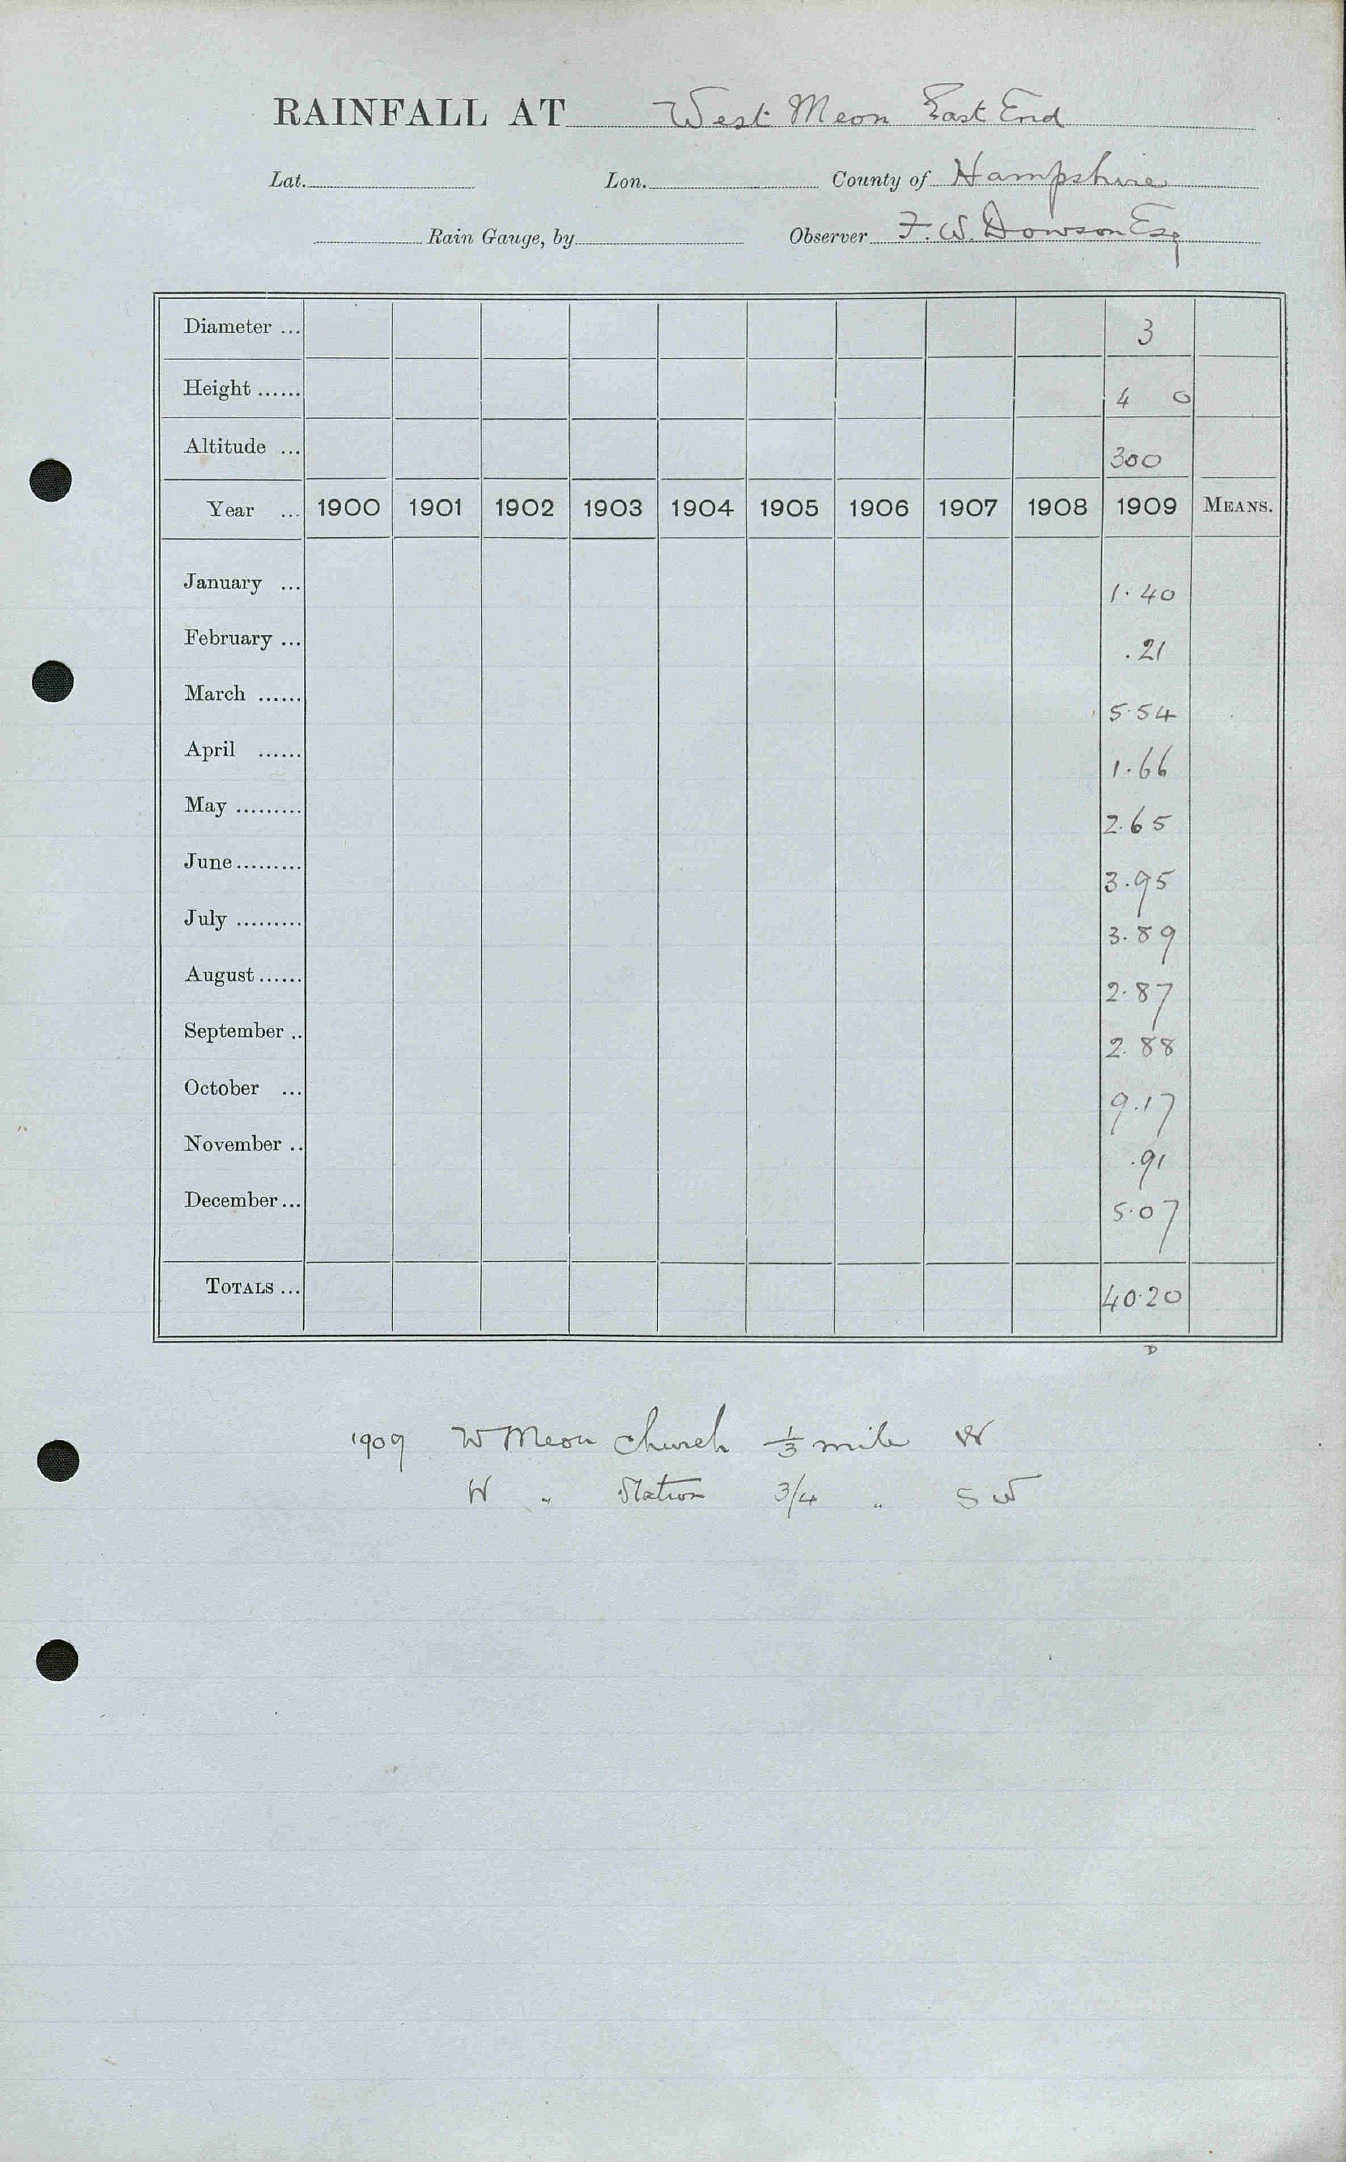 RAINFALL AT West Meon East End
Lat. Lon. County of Hampshire
Rain Gauge, by Observer F. W. Dowson Esq
Diameter ... 3
Height ...... 4 0
Altitude ... 300
Year ... 1900 1901 1902 1903 1904 1905 1906 1907 1908 1909 MEANS.
January ... 1.40
February ... .21
March ...... 5.54
April ...... 1.66
May ......... 2.65
June ......... 3.95
July ......... 3.89
August ...... 2.87
September .. 2.88
October ... 9.17
November .. .91
December ... 5.07
TOTALS ... 40.20
D
1909 W Meon church 1/3 mile W
W " Station 3/4 " S W